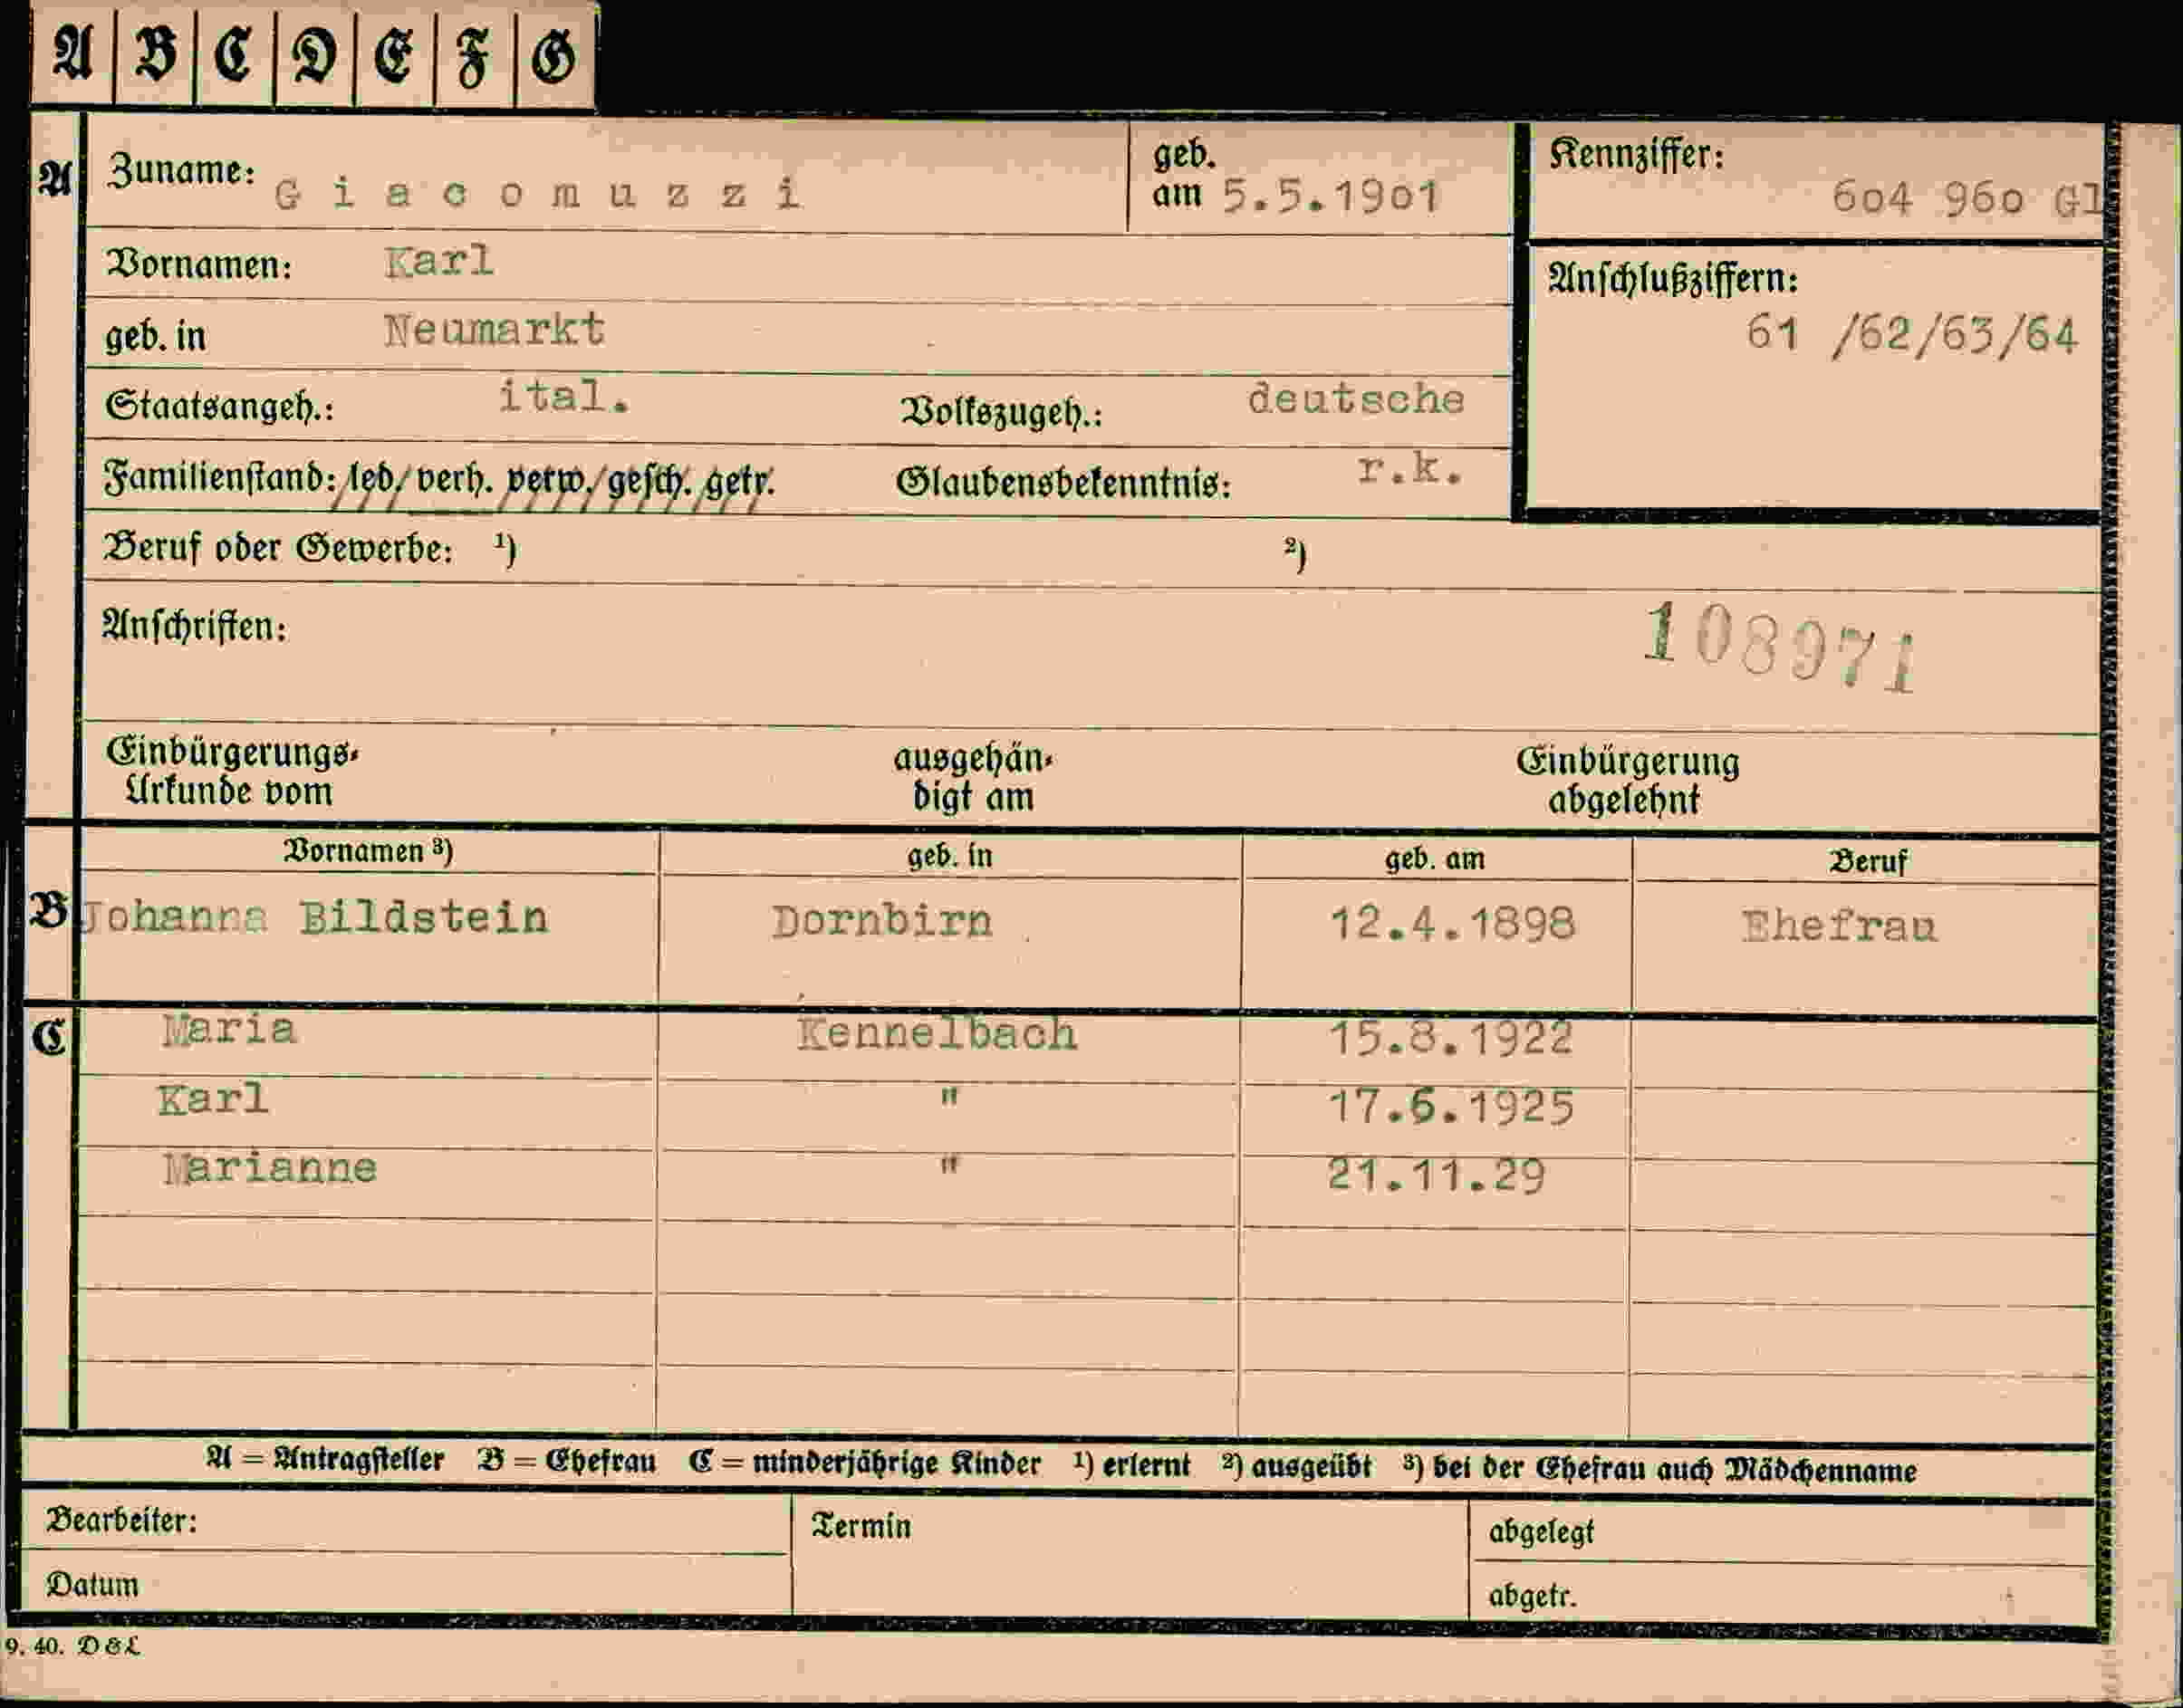 A B C D E F G
A Zuname: Giacomuzzi geb. am 5.5.1901 Kennziffer: 604 960 Gl
Vornamen: Karl Anschlußziffern:
geb. in Neumarkt 61 /62/63/64
Staatsangeh.: ital. Volkszugeh.: deutsche
Familienstand: led/ verh. verw./gesch. getr. Glaubensbekenntnis: r.k.
Beruf oder Gewerbe: ¹) ²)
Anschriften: 108971
Einbürgerungs- ausgehän- Einbürgerung
Urkunde vom digt am abgelehnt
Vornamen ³) geb. in geb. am Beruf
B Johanna Bildstein Dornbirn 12.4.1898 Ehefrau
C Maria Kennelbach 15.8.1922
Karl " 17.6.1925
Marianne " 21.11.29
A = Antragsteller B = Ehefrau C = minderjährige Kinder ¹) erlernt ²) ausgeübt ³) bei der Ehefrau auch Mädchenname
Bearbeiter: Termin abgelegt
Datum abgetr.
9. 40. D & L